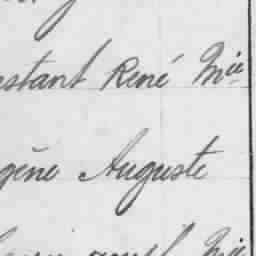 stant René Mie
gène Auguste
Mie